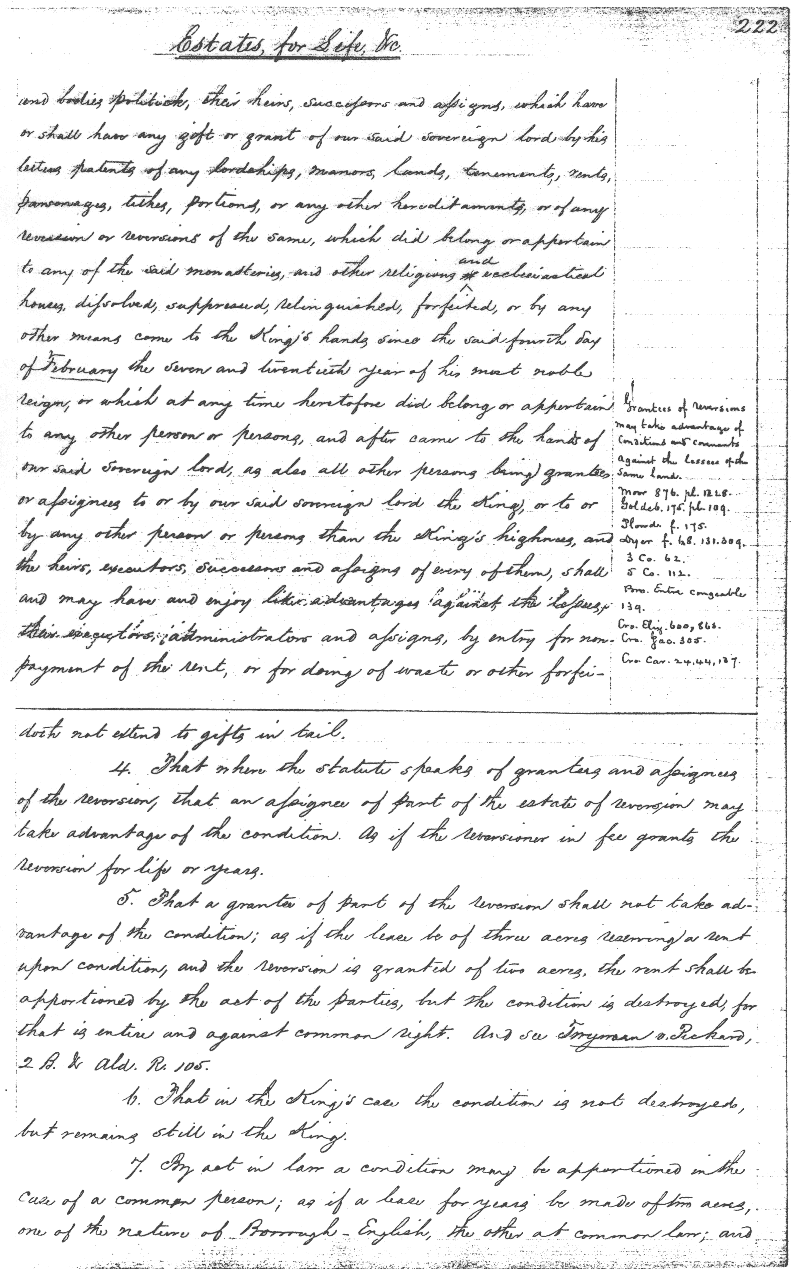 222
Estates, for Life, &c.
and bodies politick, their heirs, successors and assigns, which have
or shall have any gift or grant of our said sovereign lord by his
letters patents of any lordships, manors, lands, tenements, rents,
parsonages, tithes, portions, or any other hereditaments, or of any
reversion or reversions of the same, which did belong or appertain
to any of the said monasteries, and other religious and ecclesiastical
houses, dissolved, suppressed, relinquished, forfeited, or by any
other means come to the King's hands since the said fourth day
of February the seven and twentieth year of his most noble
reign, or which at any time heretofore did belong or appertain
to any other person or persons, and after came to the hands of
our said sovereign lord, as also all other persons being grantees
or assignees to or by our said sovereign lord the King, or to or
by any other person or persons than the King's highness, and
the heirs, executors, successors and assigns of every of them, shall
and may have and enjoy like advantages against the lessees,
their executors, administrators and assigns, by entry for non-
payment of the rent, or for doing of waste or other forfei-
Grantees of reversions
may take advantage of
Conditions and covenants
against the lessees of the
same land.
Moor 876. pl. 1228.
Goldeb. 175. pl. 109.
Plowd. f. 175.
Dyer f. 68. 131. 309.
3 Co. 62.
5 Co. 112.
Bro. Entre congeable
139.
Cro. Eliz. 600, 863.
Cro. Jac. 305.
Cro. Car. 24, 44, 137.
doth not extend to gifts in tail.
4. That where the statute speaks of grantees and assignees
of the reversion, that an assignee of part of the estate of reversion may
take advantage of the condition. As if the reversioner in fee grants the
reversion for life or years.
5. That a grantee of part of the reversion shall not take ad-
vantage of the condition; as if the lease be of three acres reserving a rent
upon condition, and the reversion is granted of two acres, the rent shall be
apportioned by the act of the parties, but the condition is destroyed, for
that is entire and against common right. And see Twyman v. Pickard,
2 B. & Ald. R. 105.
6. That in the King's case the condition is not destroyed,
but remains still in the King.
7. By act in law a condition may be apportioned in the
case of a common person; as if a lease for years be made of two acres,
one of the nature of Borrough-English, the other at common law; and